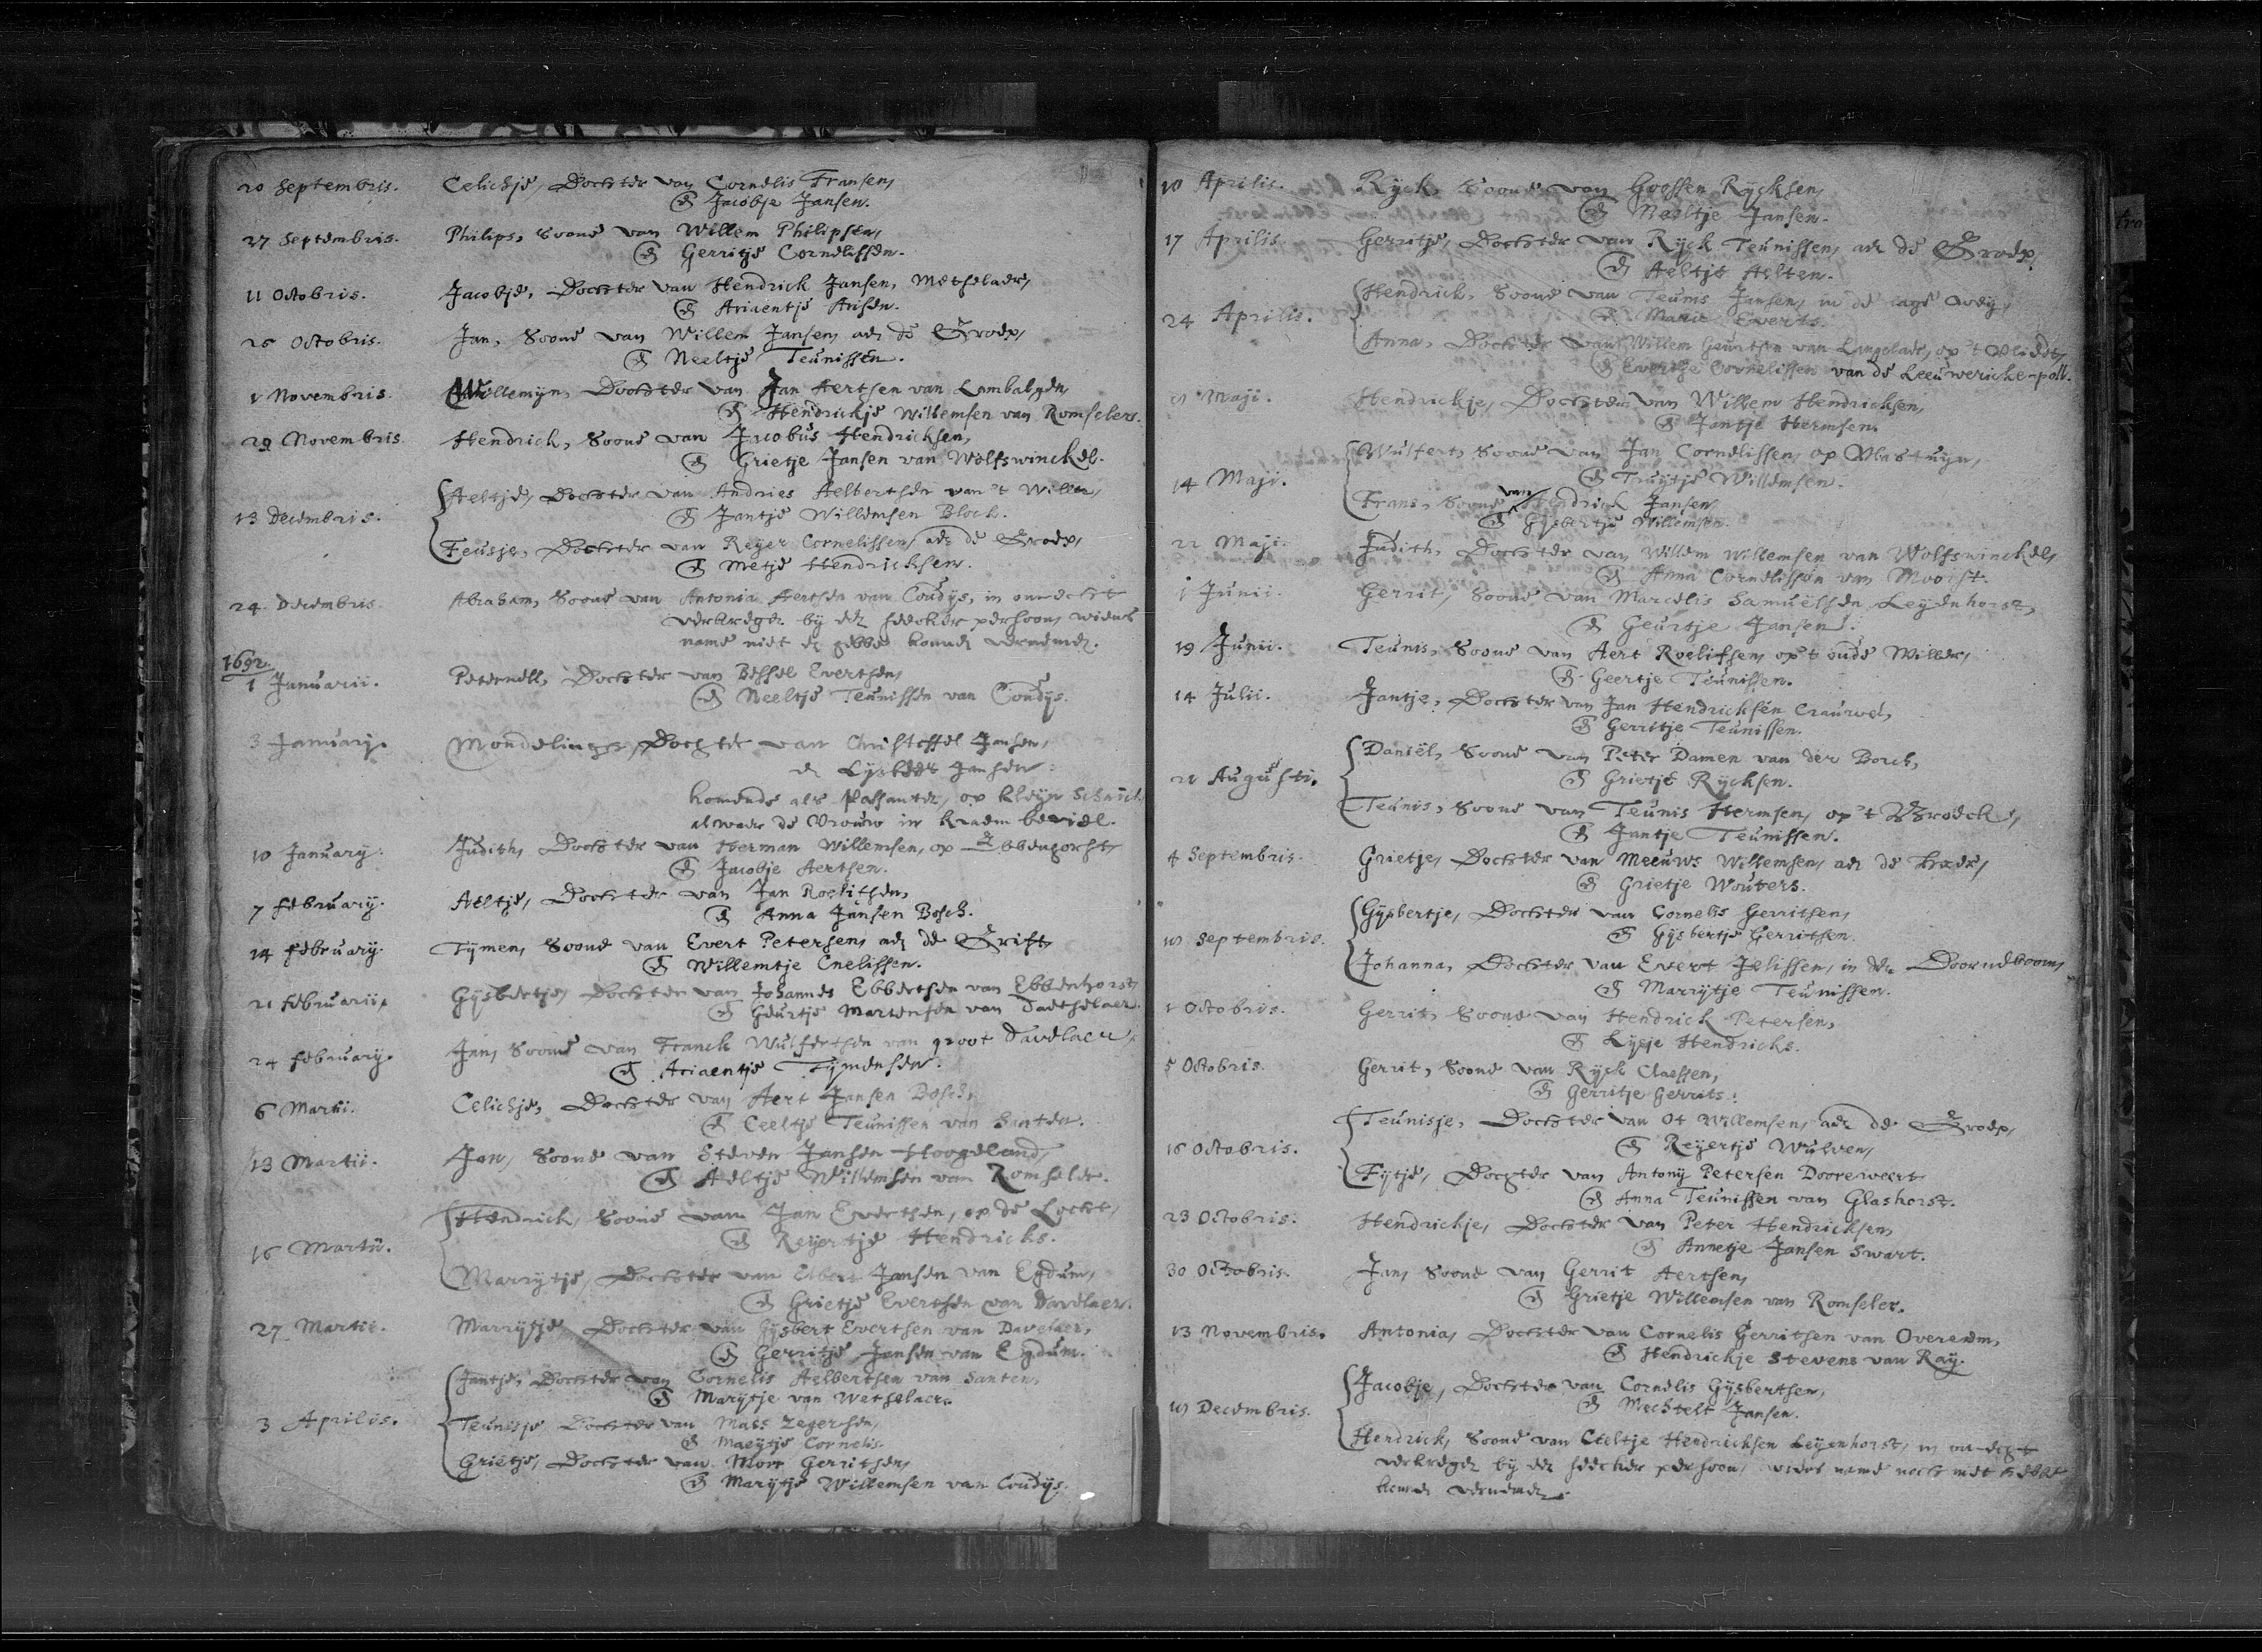 20 Septembris. Celichje, Dochter van Cornelis Fransen,
& Jacobje Jansen.
27 Septembris. Philips, Soone van Willem Philipsen,
& Gerritje Cornelissen.
11 Octobris. Jacobje, Dochter van Hendrick Jansen, Metselaer,
& Ariaentje Arisen.
26 Octobris. Jan, Soone van Willem Jansen, aen de Groep,
& Neeltje Teunissen.
1 Novembris. Willemyn, Dochter van Jan Aertsen van Lambalgen,
& Hendrickje Willemsen van Romseler.
29 Novembris. Hendrick, Soone van Jacobus Hendricksen,
& Grietje Jansen van Wolfswinckel.
Aeltje, Dochter van Andries Aelbertsen van 't Willer,
13 Decembris. & Jantje Willemsen Block.
Teusje, Dochter van Reyer Cornelissen, aen de Groep,
& Metje Hendricksen.
24 Decembris. Abraham, Soone van Antonia Aertsen van Coudys, in onecht
verkregen by een seecker persoon, wiens
name niet en hebbe konnen vernemen.
1692.
1 Januarii. Peternell, Dochter van Bessel Evertsen,
& Neeltje Teunissen van Coudys.
3 January. Mondelinge, Dochter van Christoffel Jansen,
en Lysbeet Jansen.
komende als Passanten, op kleyn Schaick
alwaer de Vrouw in kraem beviel.
10 January. Judith, Dochter van Herman Willemsen, op Ebbenhorst,
& Jacobje Aertsen.
7 February. Aeltje, Dochter van Jan Roelifsen,
& Anna Jansen Bosch.
14 February. Tymen, Soone van Evert Petersen, aen de Grift,
& Willemtje Cnelissen.
21 Februarii, Gysbertje, Dochter van Johannes Ebbertsen van Ebbenhorst,
& Geurtje Martensen van Daetselaer.
24 February. Jan, Soone van Franck Wulfertsen van groot Davelaer,
& Ariaentje Tymensen.
6 Martii. Celichje, Dochter van Aert Jansen Bosch,
& Ceeltje Teunissen van Santen.
13 Martii. Jan, Soone van Steven Jansen Hoogeland,
& Aeltje Willemsen van Romseler.
Hendrick, Soone van Jan Evertsen, op de Locht,
16 Martii. & Reyertje Hendricks.
Marrytje, Dochter van Elbert Jansen van Egdum,
& Grietje Evertsen van Davelaer.
27 Martii. Marrytje, Dochter van Gysbert Evertsen van Davelaer,
& Gerritje Jansen van Egdum.
Jantje, Dochter van Cornelis Aelbertsen van Santen,
& Marytje van Wetselaer.
3 Aprilis. Teunisje Dochter van Maes Zegersen,
& Maeytje Cornelis.
Grietje, Dochter van Mor Gerritsen,
& Marytje Willemsen van Coudys.
10 Aprilis. Ryck, Soone van Goossen Rycksen,
& Neeltje Jansen.
17 Aprilis. Gerritje, Dochter van Ryck Teunissen, aen de Groep,
& Aeltje Aelten.
Hendrick, Soone van Teunis Jansen, in de lage wey,
24 Aprilis. & Maria Everts.
Anna, Dochter van Willem Geurtsen van Langelaer, op 't Vliedt,
& Evertje Cornelissen van de Leeuwericke-poll.
Maji. Hendrickje, Dochter van Willem Hendricksen,
& Jantje Hermsen.
Wulfert, Soone van Jan Cornelissen, op Vlastuyn,
14 Maji. & Truytje Willemsen.
Frans, Soone van Hendrick Jansen
& Gysbertje Willemsen.
22 Maji. Judith, Dochter van Willem Willemsen van Wolfswinckel,
& Anna Cornelissen van Moorst.
1 Junii. Gerrit, Soone van Marcelis Samuëlsen Leyenhorst,
& Geurtje Jansen.
19 Junii. Teunis, Soone van Aert Roelifsen, op 't oude Willer,
& Geertje Teunissen.
14 Julii. Jantje, Dochter van Jan Hendricksen Crauwel,
& Gerritje Teunissen.
Daniël, Soone van Peter Damen van der Borch,
21 Augusti. & Grietje Rycksen.
Teunis, Soone van Teunis Hermsen, op 't Broeck,
& Jantje Teunissen.
4 Septembris. Grietje, Dochter van Meeuws Willemsen, aen de
& Grietje Wouters.
Gysbertje, Dochter van Cornelis Gerritsen,
Septembris. & Gysbertje Gerritsen.
Johanna, Dochter van Evert Jelissen, in den Doorneboom,
& Marrytje Teunissen.
1 Octobris. Gerrit, Soone van Hendrick Petersen,
& Lysje Hendricks.
5 Octobris. Gerrit, Soone van Ryck Claessen,
& Gerritje Gerrits.
Teunisje, Dochter van Ot Willemsen, aen de Groep,
16 Octobris. & Reyertje Wulven,
Fytje, Dochter van Antony Petersen Dooreweert
& Anna Teunissen van Glashorst.
23 Octobris. Hendrickje, Dochter van Peter Hendricksen,
& Annetje Jansen Swart.
30 Octobris. Jan, Soone van Gerrit Aertsen,
& Grietje Willemsen van Romseler.
13 Novembris. Antonia, Dochter van Cornelis Gerritsen van Overeem,
& Hendrickje Stevens van Ray.
Jacobje, Dochter van Cornelis Gysbertsen,
Decembris. & Mechtelt Jansen.
Hendrick, Soone van Ceeltje Hendricksen Leyenhorst, in on-echt
verkregen by een seecker persoon, wiens name noch niet hebbe
konnen vernemen.